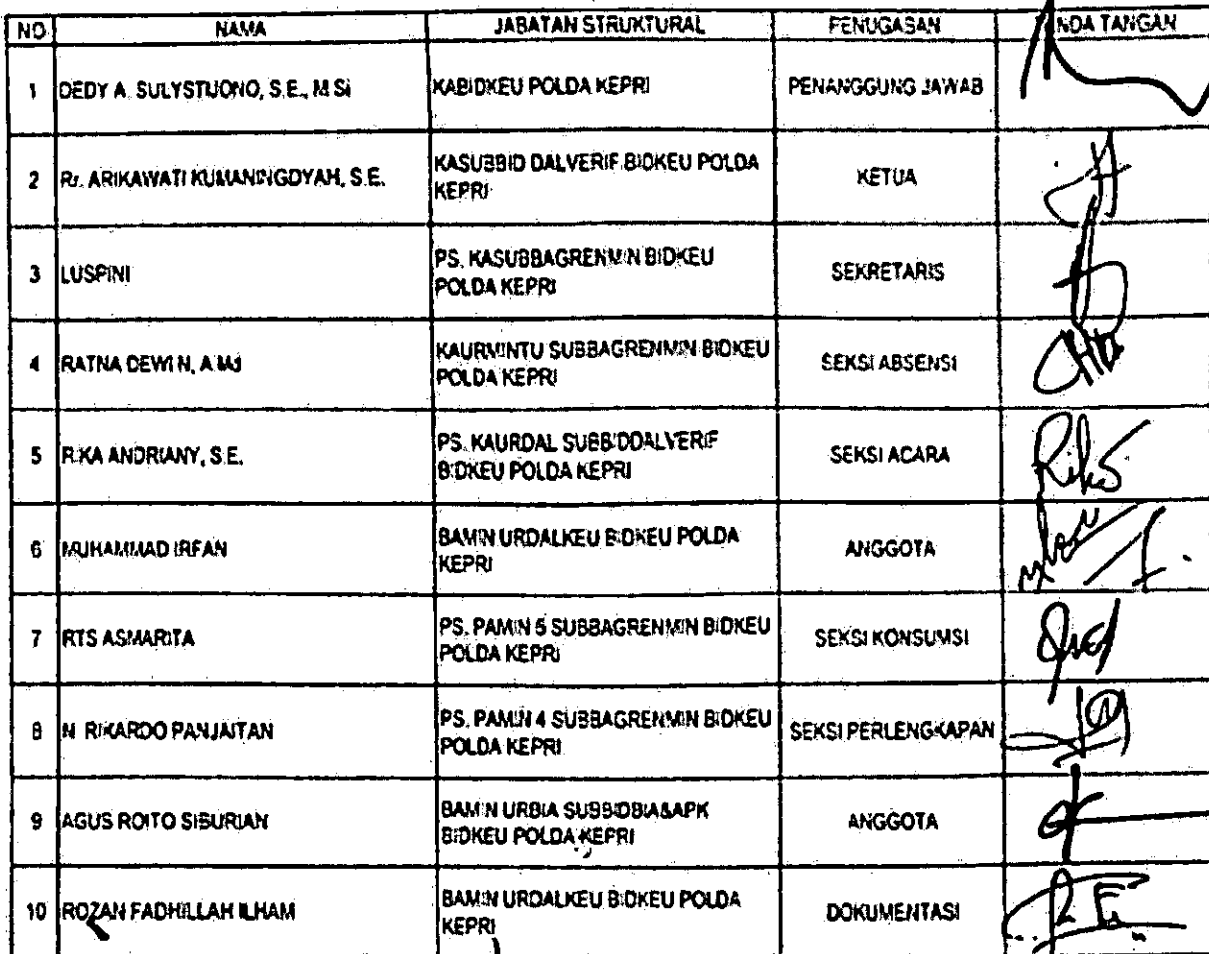 NO NAMA JABATAN STRUKTURAL PENUGASAN NDA TANGAN
1 DEDY A. SULYSTIJONO, S.E., M.Si KABIDKEU POLDA KEPRI PENANGGUNG JAWAB
2 Rr. ARIKAWATI KUMANINGDYAH, S.E. KASUBBID DALVERIF BIDKEU POLDA
KEPRI KETUA
3 LUSPINI PS. KASUBBAGRENMIN BIDKEU
POLDA KEPRI SEKRETARIS
4 RATNA DEWI N, A.Md KAURMINTU SUBBAGRENMIN BIDKEU
POLDA KEPRI SEKSI ABSENSI
5 RIKA ANDRIANY, S.E. PS. KAURDAL SUBBIDDALVERIF
BIDKEU POLDA KEPRI SEKSI ACARA Rika
6 MUHAMMAD IRFAN BAMIN URDALKEU BIDKEU POLDA
KEPRI ANGGOTA
7 RTS ASMARITA PS. PAMIN 5 SUBBAGRENMIN BIDKEU
POLDA KEPRI SEKSI KONSUMSI
8 N RIKARDO PANJAITAN PS. PAMIN 4 SUBBAGRENMIN BIDKEU
POLDA KEPRI SEKSI PERLENGKAPAN
9 AGUS ROITO SIBURIAN BAMIN URBIA SUBBIDBIA&APK
BIDKEU POLDA KEPRI ANGGOTA
10 ROZAN FADHILLAH ILHAM BAMIN URDALKEU BIDKEU POLDA
KEPRI DOKUMENTASI